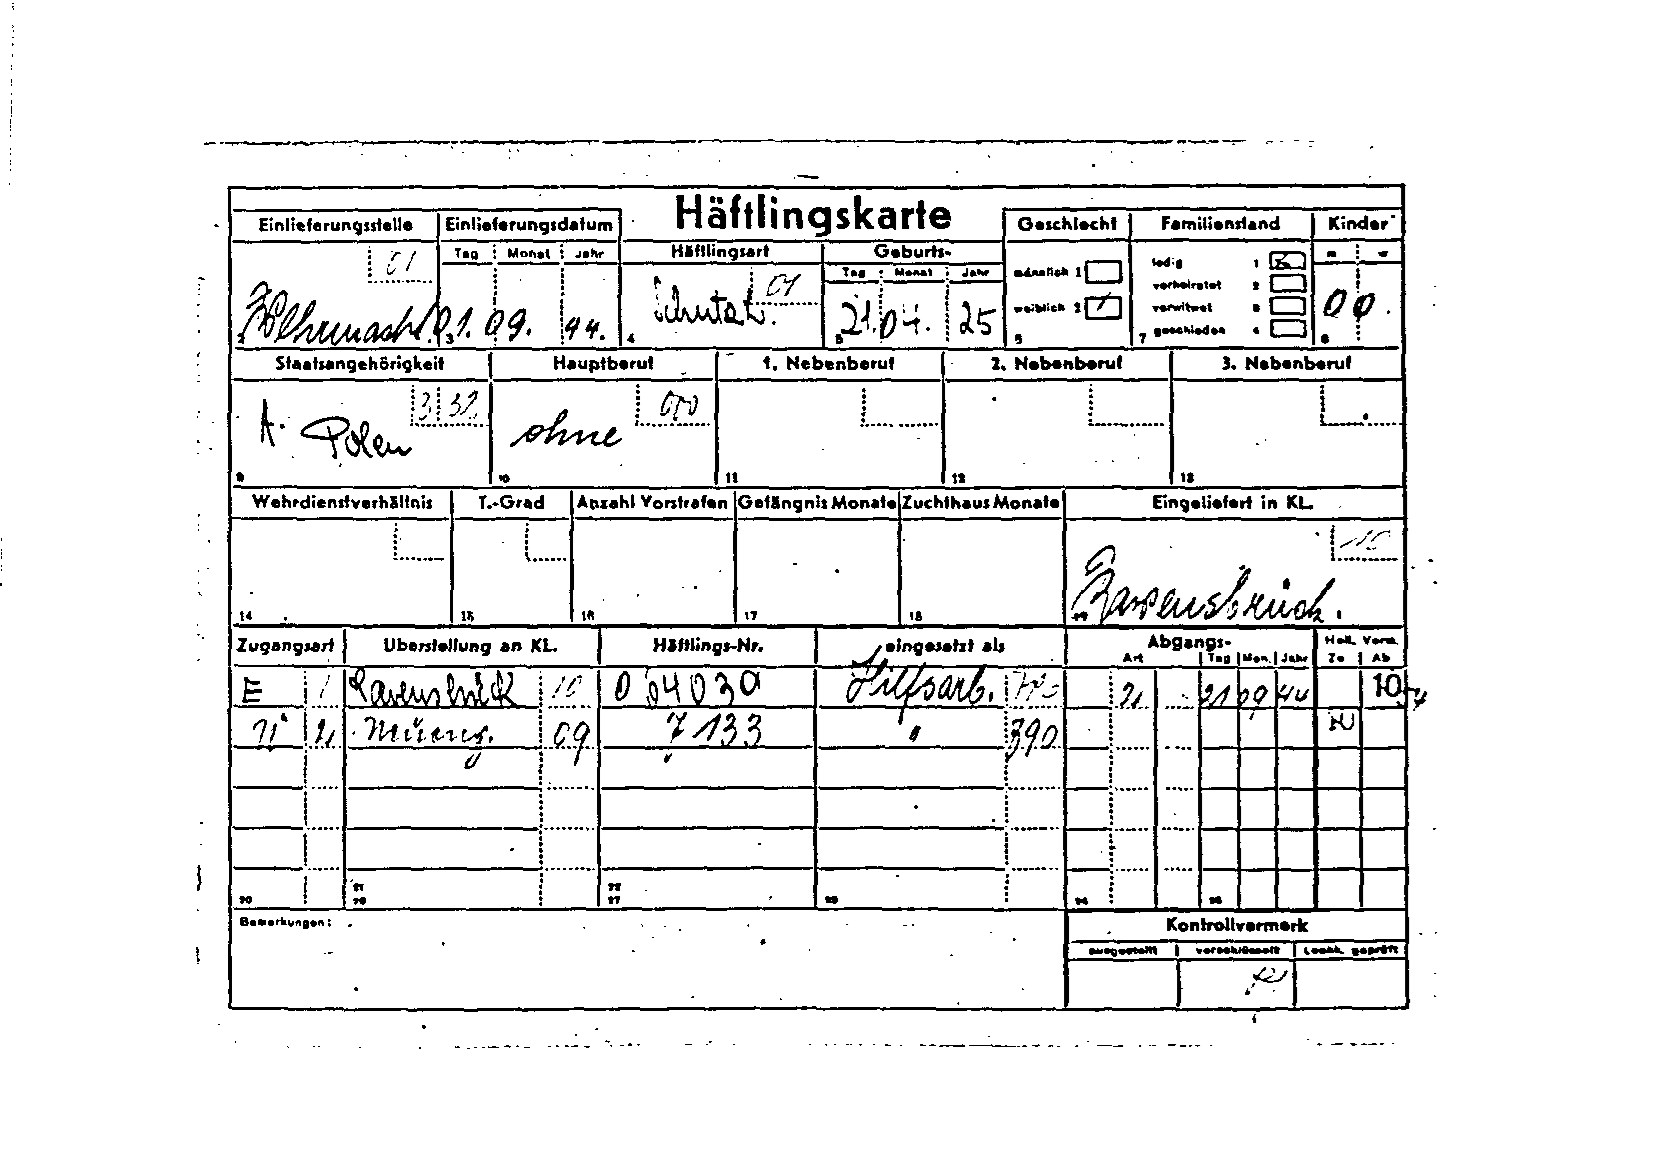 Häftlingskarte
Einlieferungsstelle Einlieferungsdatum Geschlecht Familienstand Kinder
Tag Monat Jahr Häftlingsart Geburts-
Tag Monat Jahr
01 01
Wehrmacht 01. 09. 44. Schutzh. 21. 04. 25
männlich 1
weiblich 2
ledig 1 x
verheiratet 2
verwitwet 3
geschieden 4
m w
00.
2 3 4 5 5 7 8
Staatsangehörigkeit Hauptberuf 1. Nebenberuf 2. Nebenberuf 3. Nebenberuf
3 32 000
A. Polen ohne
9 10 11 12 13
Wehrdienstverhältnis T.-Grad Anzahl Vorstrafen Gefängnis Monate Zuchthaus Monate Eingeliefert in KL.
10
Ravensbrück.
14 15 16 17 18 19
Zugangsart Überstellung an KL. Häftlings-Nr. eingesetzt als Abgangs- Holl. Verm.
Art Tag Mon. Jahr Zu Ab
E 1 Ravensbrück 10 Hilfsarb. 21 09 44 10
Ü 2 09 7133 " 390
21 22
20 26 27 23 24 25
Bemerkungen: Kontrollvermerk
ausgestellt verschlüsselt Lochk. geprüft